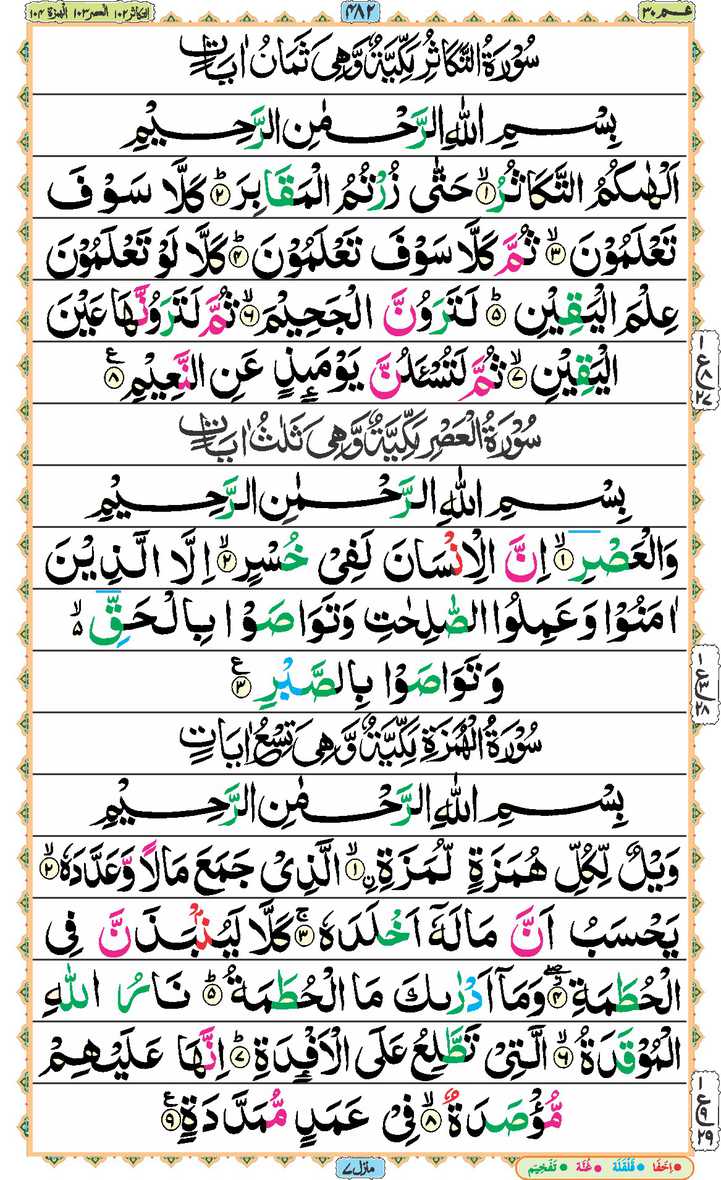 عـم ٣٠
٤٨٢
التكاثر ١٠٢ العصر ١٠٣ الهمزة ١٠٤
سُوْرَةُ التَّكَاثُرِ مَكِّيَّةٌ وَّهِیَ ثَمَانُ اٰیَاتٍ
بِسْمِ اللّٰهِ الرَّحْمٰنِ الرَّحِیْمِ
اَلْهٰىكُمُ التَّكَاثُرُۙ‏ ۱ حَتّٰی زُرْتُمُ الْمَقَابِرَؕ‏ ۲ كَلَّا سَوْفَ
تَعْلَمُوْنَۙ‏ ۳ ثُمَّ كَلَّا سَوْفَ تَعْلَمُوْنَؕ‏ ۴ كَلَّا لَوْ تَعْلَمُوْنَ
عِلْمَ الْیَقِیْنِؕ‏ ۵ لَتَرَوُنَّ الْجَحِیْمَۙ‏ ۶ ثُمَّ لَتَرَوُنَّهَا عَیْنَ
الْیَقِیْنِۙ‏ ۷ ثُمَّ لَتُسْـَٔلُنَّ یَوْمَىِٕذٍ عَنِ النَّعِیْمِ ۸ ع
سُوْرَةُ الْعَصْرِ مَكِّيَّةٌ وَّهِیَ ثَلٰثُ اٰیَاتٍ
بِسْمِ اللّٰهِ الرَّحْمٰنِ الرَّحِیْمِ
وَالْعَصْرِۙ‏ ۱ اِنَّ الْاِنْسَانَ لَفِیْ خُسْرٍۙ‏ ۲ اِلَّا الَّذِیْنَ
اٰمَنُوْا وَعَمِلُوا الصّٰلِحٰتِ وَتَوَاصَوْا بِالْحَقِّ ۬ۙ ۵
وَتَوَاصَوْا بِالصَّبْرِ ۳ ع
سُوْرَةُ الْهُمَزَةِ مَكِّيَّةٌ وَّهِیَ تِسْعُ اٰیَاتٍ
بِسْمِ اللّٰهِ الرَّحْمٰنِ الرَّحِیْمِ
وَیْلٌ لِّكُلِّ هُمَزَةٍ لُّمَزَةِۙ‏ ۱ ن الَّذِیْ جَمَعَ مَالًا وَّعَدَّدَهٗۙ‏ ۲
یَحْسَبُ اَنَّ مَالَهٗۤ اَخْلَدَهٗۚ‏ ۳ كَلَّا لَیُنْۢبَذَنَّ فِی
الْحُطَمَةِؗۖ‏ ۴ وَمَاۤ اَدْرٰىكَ مَا الْحُطَمَةُؕ‏ ۵ نَارُ اللّٰهِ
الْمُوْقَدَةُۙ‏ ۶ الَّتِیْ تَطَّلِعُ عَلَی الْاَفْـِٕدَةِؕ‏ ۷ اِنَّهَا عَلَیْهِمْ
مُّؤْصَدَةٌۙ‏ ۸ فِیْ عَمَدٍ مُّمَدَّدَةٍ ۹ ع
۱ ع ۸ ۲۷
۱ ع ۳ ۲۸
۱ ع ۹ ۲۹
منزل ۷
• اِخفَا • قَلْقَلَة • غُنَّة • تَفْخِیْم